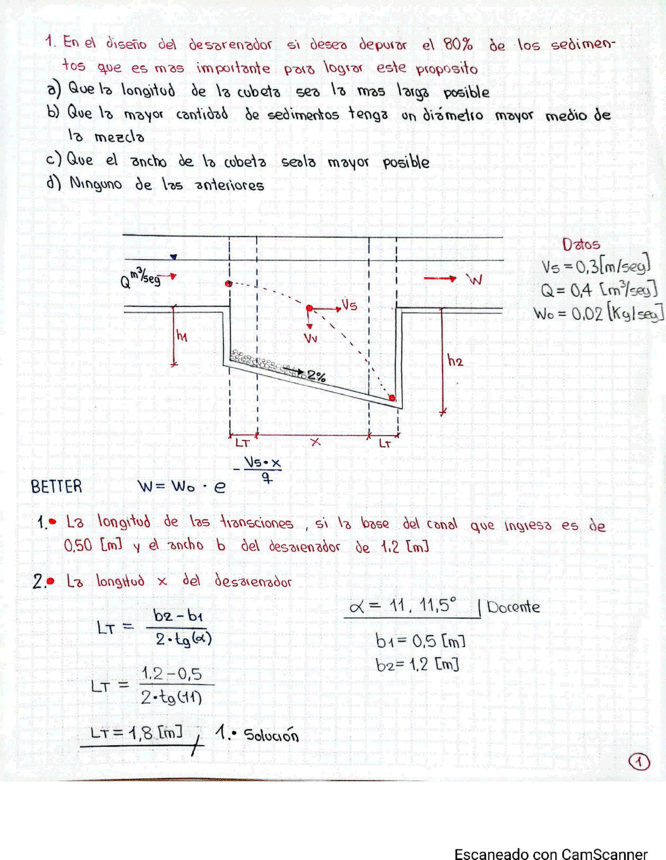 1. En el diseño del desarenador si desea depurar el 80% de los sedimen-
tos que es mas importante para lograr este proposito
a) Que la longitud de la cubeta sea la mas larga posible
b) Que la mayor cantidad de sedimentos tenga un diámetro mayor medio de
la mezcla
c) Que el ancho de la cubeta seala mayor posible
d) Ninguno de las anteriores
Datos
Vs = 0,3 [m/seg]
Q = 0,4 [m³/seg]
Wo = 0,02 [Kg/seg]
Q m³/seg
W
Vs
Vv
h1
h2
2%
LT
x
LT
BETTER W = Wo · e^(-Vs·x/q)
1.• La longitud de las transciones, si la base del canal que ingresa es de
0,50 [m] y el ancho b del desarenador de 1.2 [m]
2.• La longitud x del desarenador
LT = b2-b1 / 2·tg(α)
α = 11, 11,5° | Docente
b1 = 0,5 [m]
b2 = 1,2 [m]
LT = 1.2-0,5 / 2·tg(11)
LT = 1,8 [m] , 1.• Solución
1
Escaneado con CamScanner